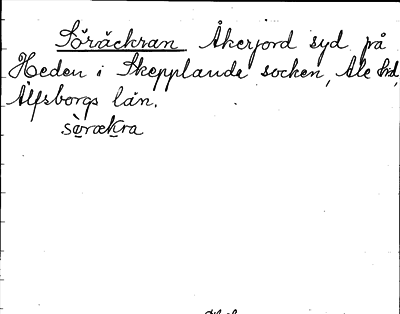 Söräckran Åkerjord syd på
Heden i Skepplanda socken, Ale hd,
Älfsborgs län.